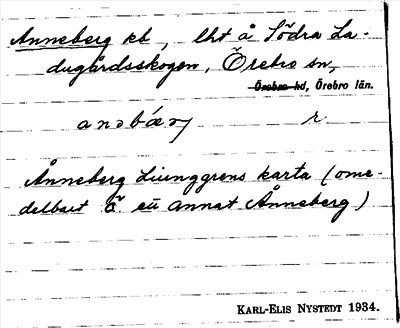 Anneberg kb, lht å Södra La-
dugårdsskogen, Örebro sn,
Örebro hd, Örebro län.
r
Ånneberg Liunggrens karta (ome-
delbart ö. ett annat Ånneberg)
KARL-ELIS NYSTEDT 1934.